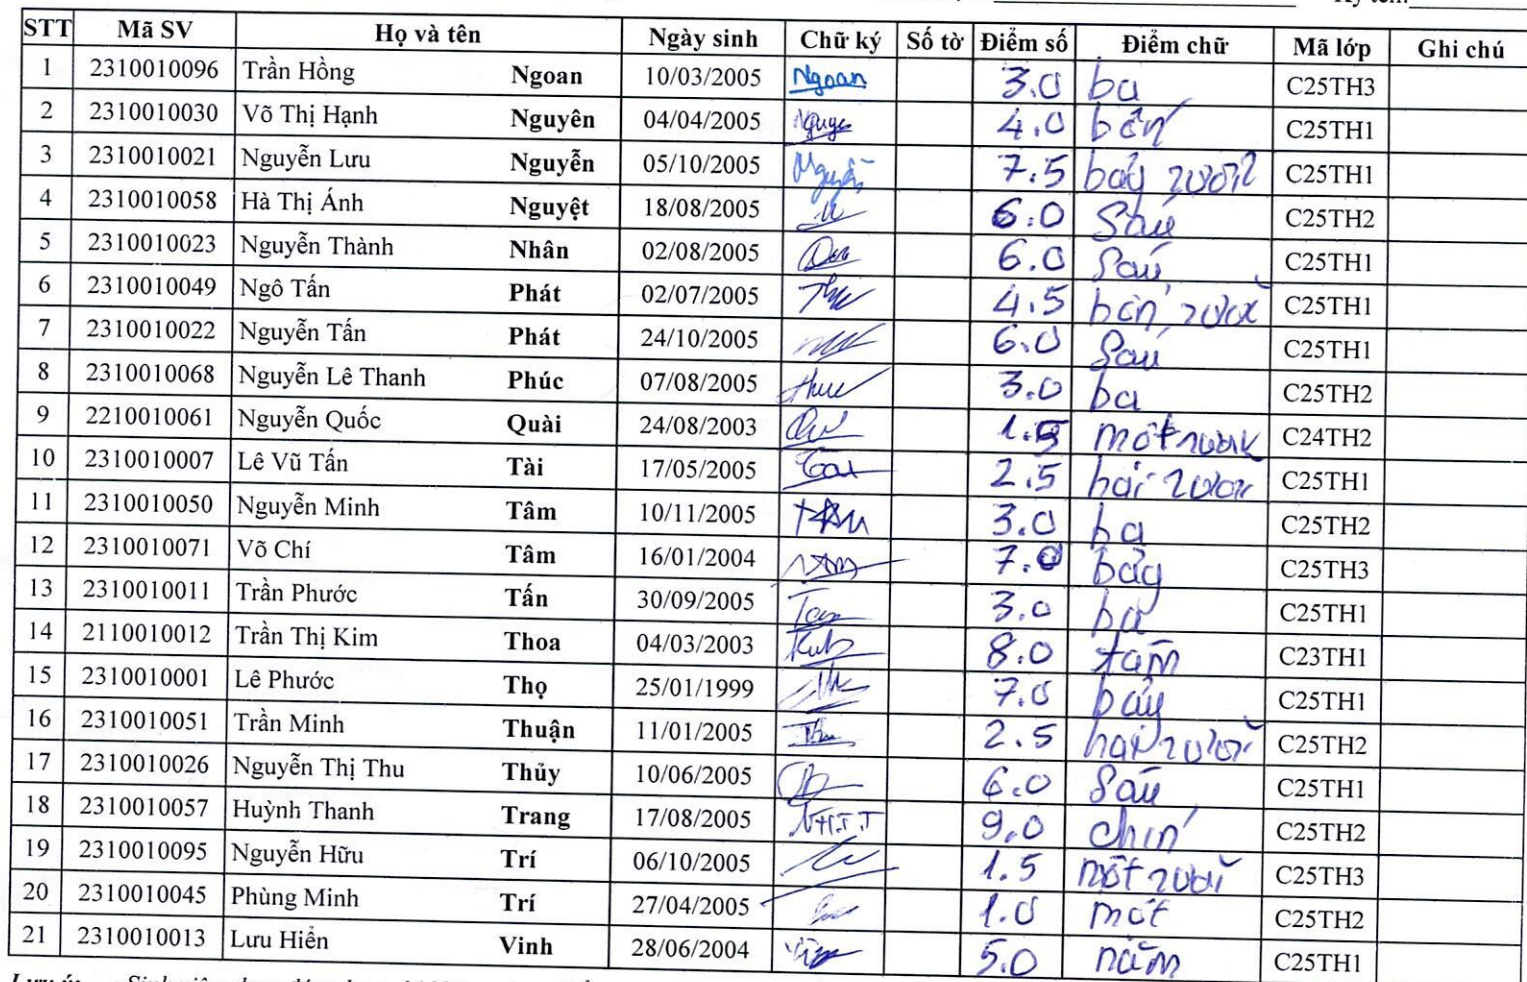 STT Mã SV Họ và tên Ngày sinh Chữ ký Số tờ Điểm số Điểm chữ Mã lớp Ghi chú
1 2310010096 Trần Hồng Ngoan 10/03/2005 Ngoan 3.0 ba C25TH3
2 2310010030 Võ Thị Hạnh Nguyên 04/04/2005 4.0 bốn C25TH1
3 2310010021 Nguyễn Lưu Nguyễn 05/10/2005 Nguyễn 7.5 bảy rưỡi C25TH1
4 2310010058 Hà Thị Ánh Nguyệt 18/08/2005 6.0 Sáu C25TH2
5 2310010023 Nguyễn Thành Nhân 02/08/2005 6.0 Sáu C25TH1
6 2310010049 Ngô Tấn Phát 02/07/2005 4.5 bốn rưỡi C25TH1
7 2310010022 Nguyễn Tấn Phát 24/10/2005 6.0 Sáu C25TH1
8 2310010068 Nguyễn Lê Thanh Phúc 07/08/2005 3.0 ba C25TH2
9 2210010061 Nguyễn Quốc Quài 24/08/2003 1.5 một rưỡi C24TH2
10 2310010007 Lê Vũ Tấn Tài 17/05/2005 2.5 hai rưỡi C25TH1
11 2310010050 Nguyễn Minh Tâm 10/11/2005 3.0 ba C25TH2
12 2310010071 Võ Chí Tâm 16/01/2004 7.0 bảy C25TH3
13 2310010011 Trần Phước Tấn 30/09/2005 3.0 ba C25TH1
14 2110010012 Trần Thị Kim Thoa 04/03/2003 8.0 tám C23TH1
15 2310010001 Lê Phước Thọ 25/01/1999 7.0 bảy C25TH1
16 2310010051 Trần Minh Thuận 11/01/2005 2.5 hai rưỡi C25TH2
17 2310010026 Nguyễn Thị Thu Thủy 10/06/2005 6.0 Sáu C25TH1
18 2310010057 Huỳnh Thanh Trang 17/08/2005 9.0 chín C25TH2
19 2310010095 Nguyễn Hữu Trí 06/10/2005 1.5 một rưỡi C25TH3
20 2310010045 Phùng Minh Trí 27/04/2005 1.0 một C25TH2
21 2310010013 Lưu Hiển Vinh 28/06/2004 5.0 năm C25TH1